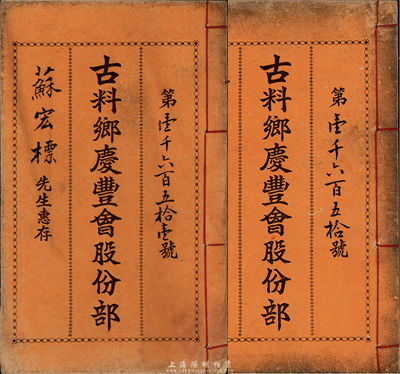 第壹千六百五拾號
古料鄉慶豐會股份部
第壹千六百五拾壹號
古料鄉慶豐會股份部
蘇宏標先生惠存